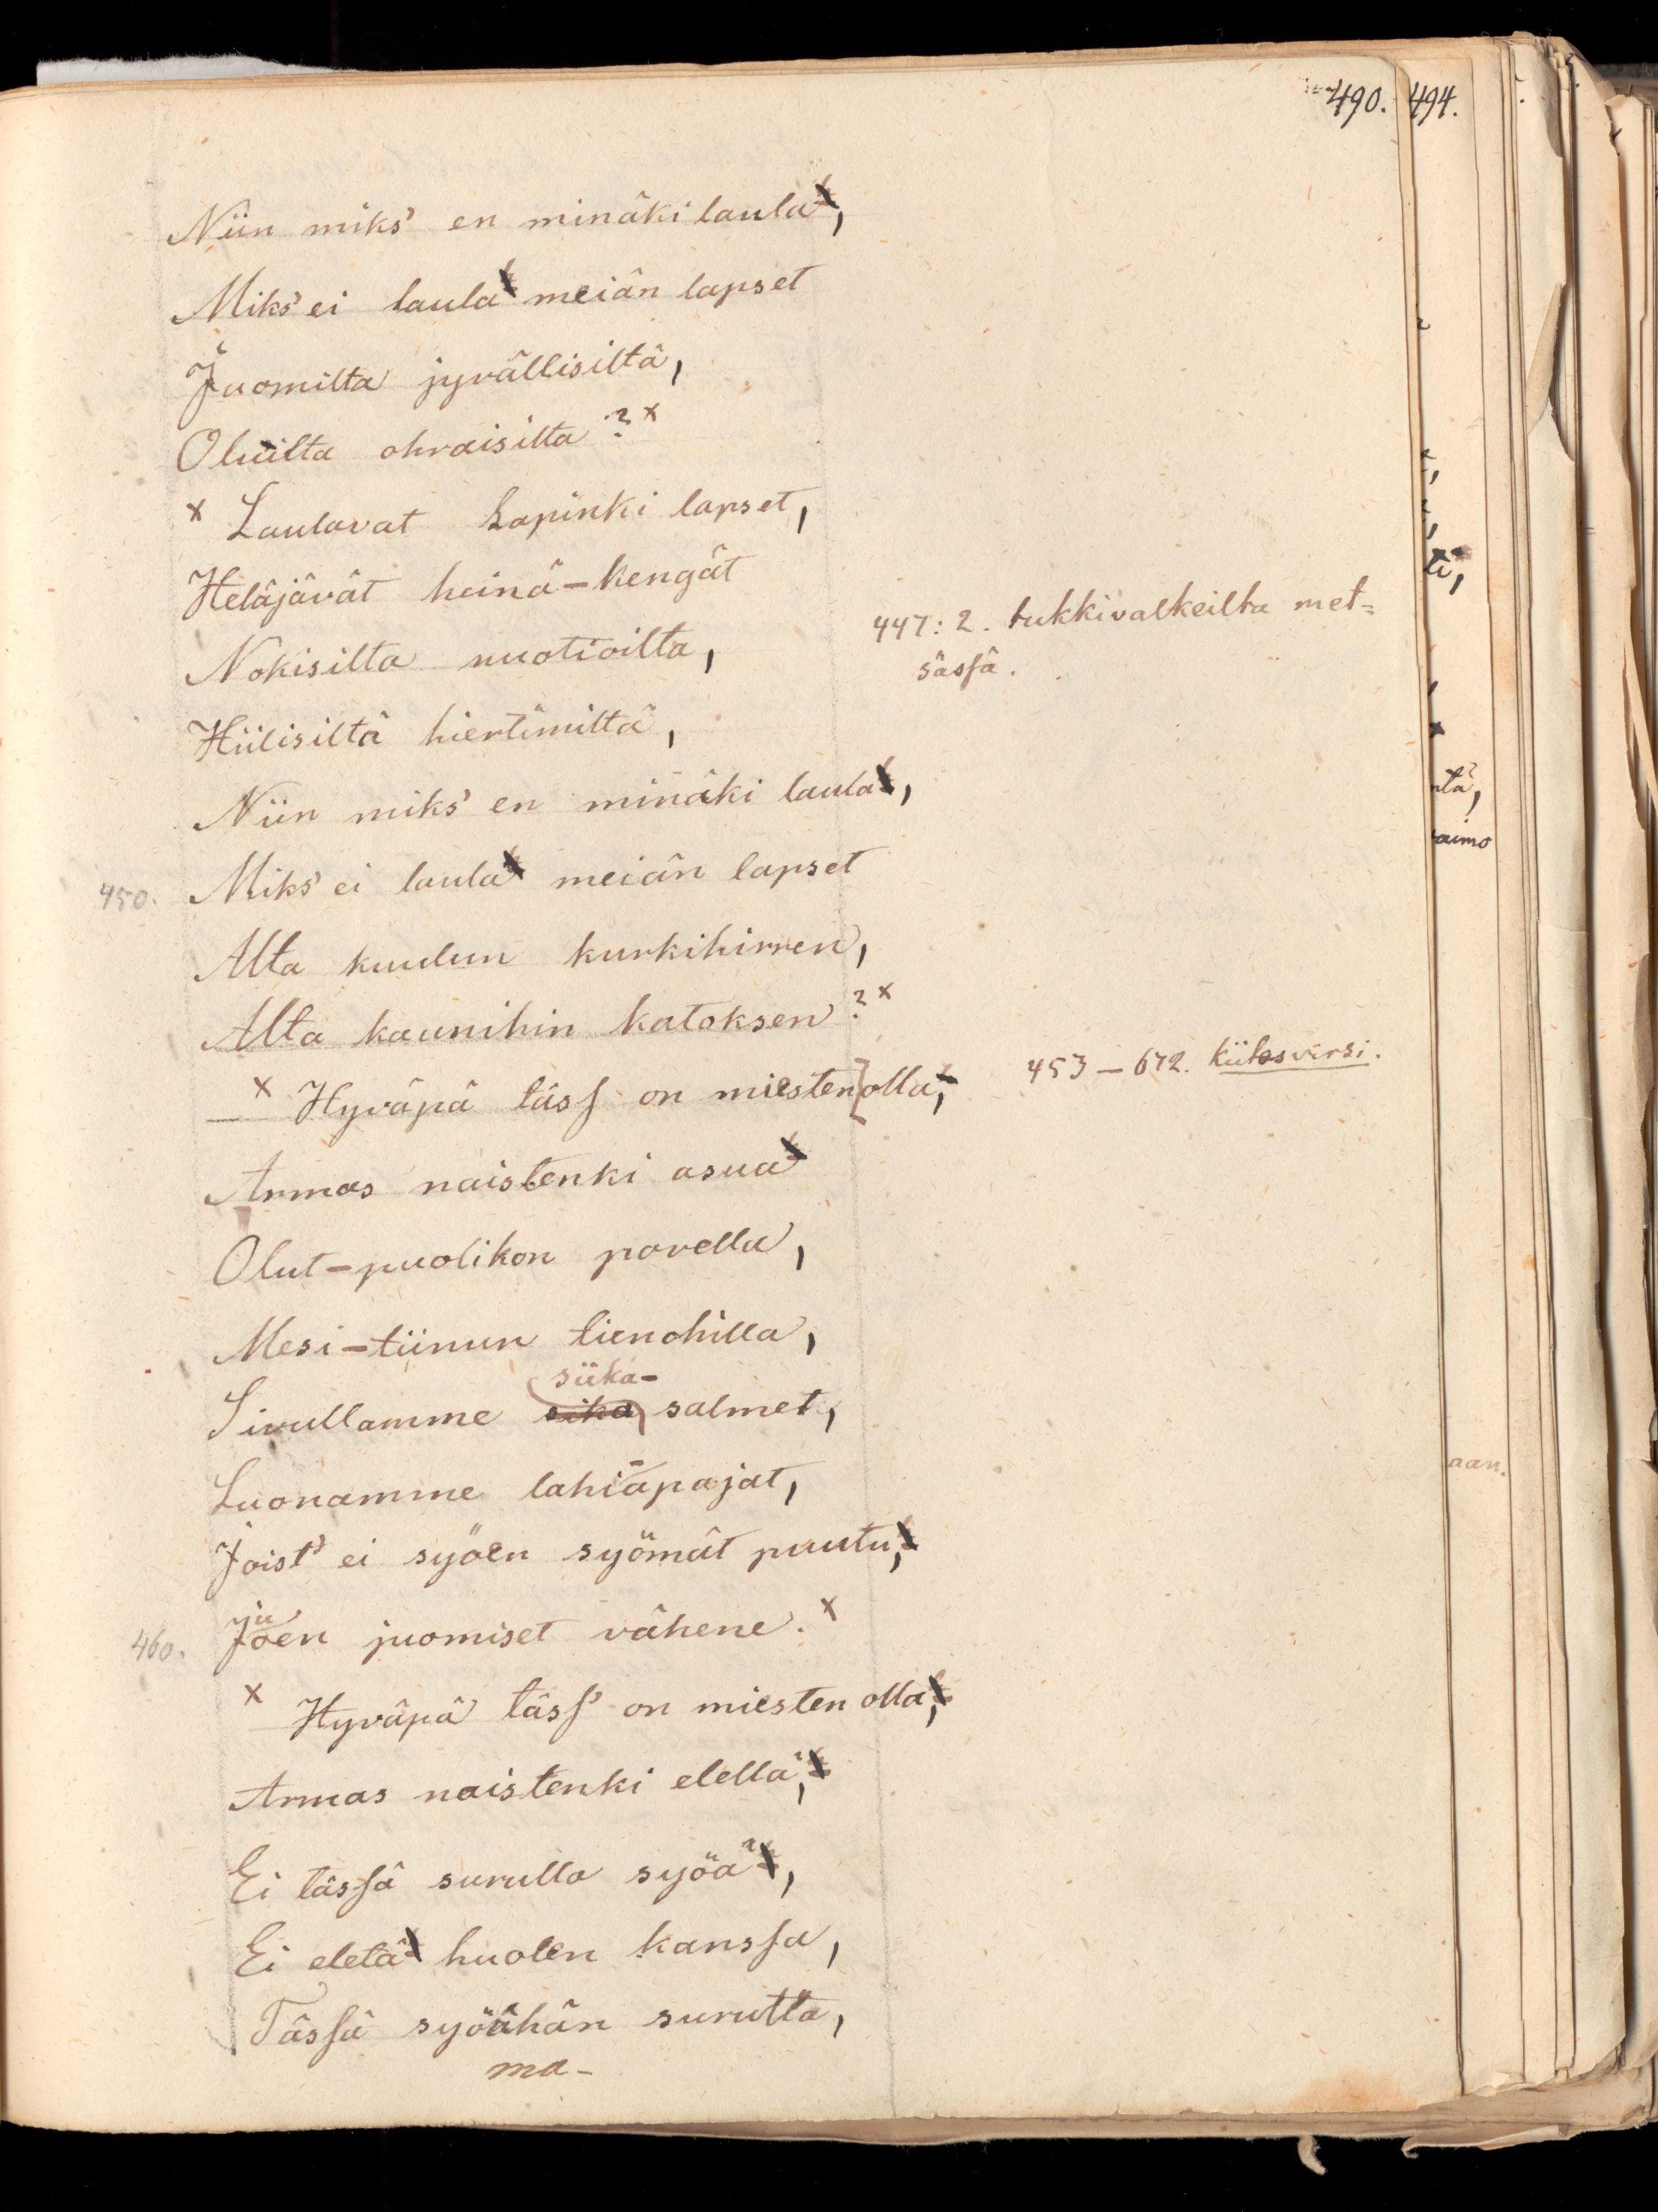 490. 494.
Niin miks' en minäki laula,
Miks' ei laula meiän lapset
Juomilta jyvällisiltä,
Oluilta ohraisilta? x
x Laulavat Lapinki lapset,
Heläjävät heinä-kengät
Nokisilta nuotioilta,
447: 2. tukkivalkeilta met=
sässä.
Hiilisiltä hiertimiltä,
Niin miks' en minäki laula,
450. Miks' ei laula meiän lapset
Alta kuulun kurkihirren,
Alta kaunihin katoksen? x
x Hyväpä täss on miesten olla,
453–672. kiitosvirsi.
Armas naistenki asua
Olut-puolikon povella,
Mesi-tiinun tienohilla,
siika-
Sivullamme sika salmet,
Luonamme lahi-apajat,
Joist' ei syöen syömät puutu,
460. Juoen juomiset vähene. x
x Hyväpä täss' on miesten olla,
Armas naistenki elellä,
Ei tässä surulla syöä,
Ei eletä huolen kanssa,
Tässä syöähän surutta,
ma-
ti,
ntä,
aimo
aan.